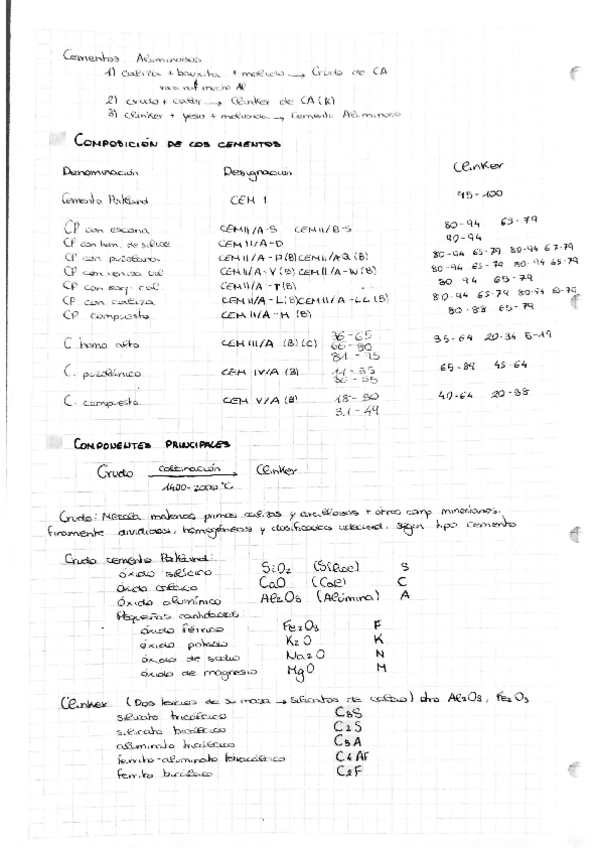 Cementos Aluminosos
1) caliza + bauxita + molienda → Crudo de CA
mucho Al
2) crudo + calor → Clinker de CA (K)
3) clinker + yeso + molienda → Cemento Aluminoso
COMPOSICIÓN DE LOS CEMENTOS
Denominación Designación Clinker
Cemento Portland CEM I 95-100
CP con escoria CEM II/A-S CEM II/B-S 80-94 65-79
CP con hum. de sílice CEM II/A-D 90-94
CP con puzolana CEM II/A-P (B) CEM II/A-Q (B) 80-94 65-79 80-94 65-79
CP con ceniza vol. CEM II/A-V (B) CEM II/A-W (B) 80-94 65-79 80-94 65-79
CP con esq. cal. CEM II/A-T (B) 80-94 65-79
CP con caliza CEM II/A-L (B) CEM II/A-LL (B) 80-94 65-79 80-94 65-79
CP compuesto CEM II/A-M (B) 80-88 65-79
C horno alto CEM III/A (B) (C) 36-65 35-64 20-34 5-19
66-80
81-95
C. puzolánico CEM IV/A (B) 11-35 65-89 45-64
36-55
C. compuesto CEM V/A (B) 18-30 40-64 20-38
31-49
COMPONENTES PRINCIPALES
Crudo calcinación → Clinker
1400-2000 °C
Crudo: Mezcla materias primas calizas y arcillosas + otros comp minoritarios,
finamente divididas, homogéneas y dosificadas según tipo cemento
Crudo cemento Portland:
óxido silícico SiO₂ (Sílice) S
óxido cálcico CaO (Cal) C
óxido alumínico Al₂O₃ (Alúmina) A
Pequeñas cantidades:
óxido férrico Fe₂O₃ F
óxido potasio K₂O K
óxido de sodio Na₂O N
óxido de magnesio MgO M
Clinker (Dos tercios de su masa → silicatos de calcio) otro Al₂O₃, Fe₂O₃
silicato tricálcico C₃S
silicato bicálcico C₂S
aluminato tricálcico C₃A
ferrito-aluminato tetracálcico C₄AF
ferrito bicálcico C₂F